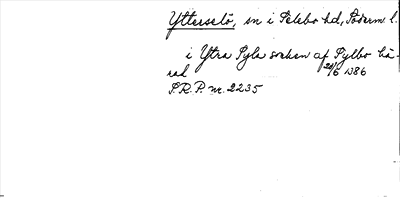 Ytterselö, sn i Selebo hd, Söderm l.
i Ytra Sylæ soken af Sylbo hä-
rad 29/6 1386
S.R.P. nr. 2235